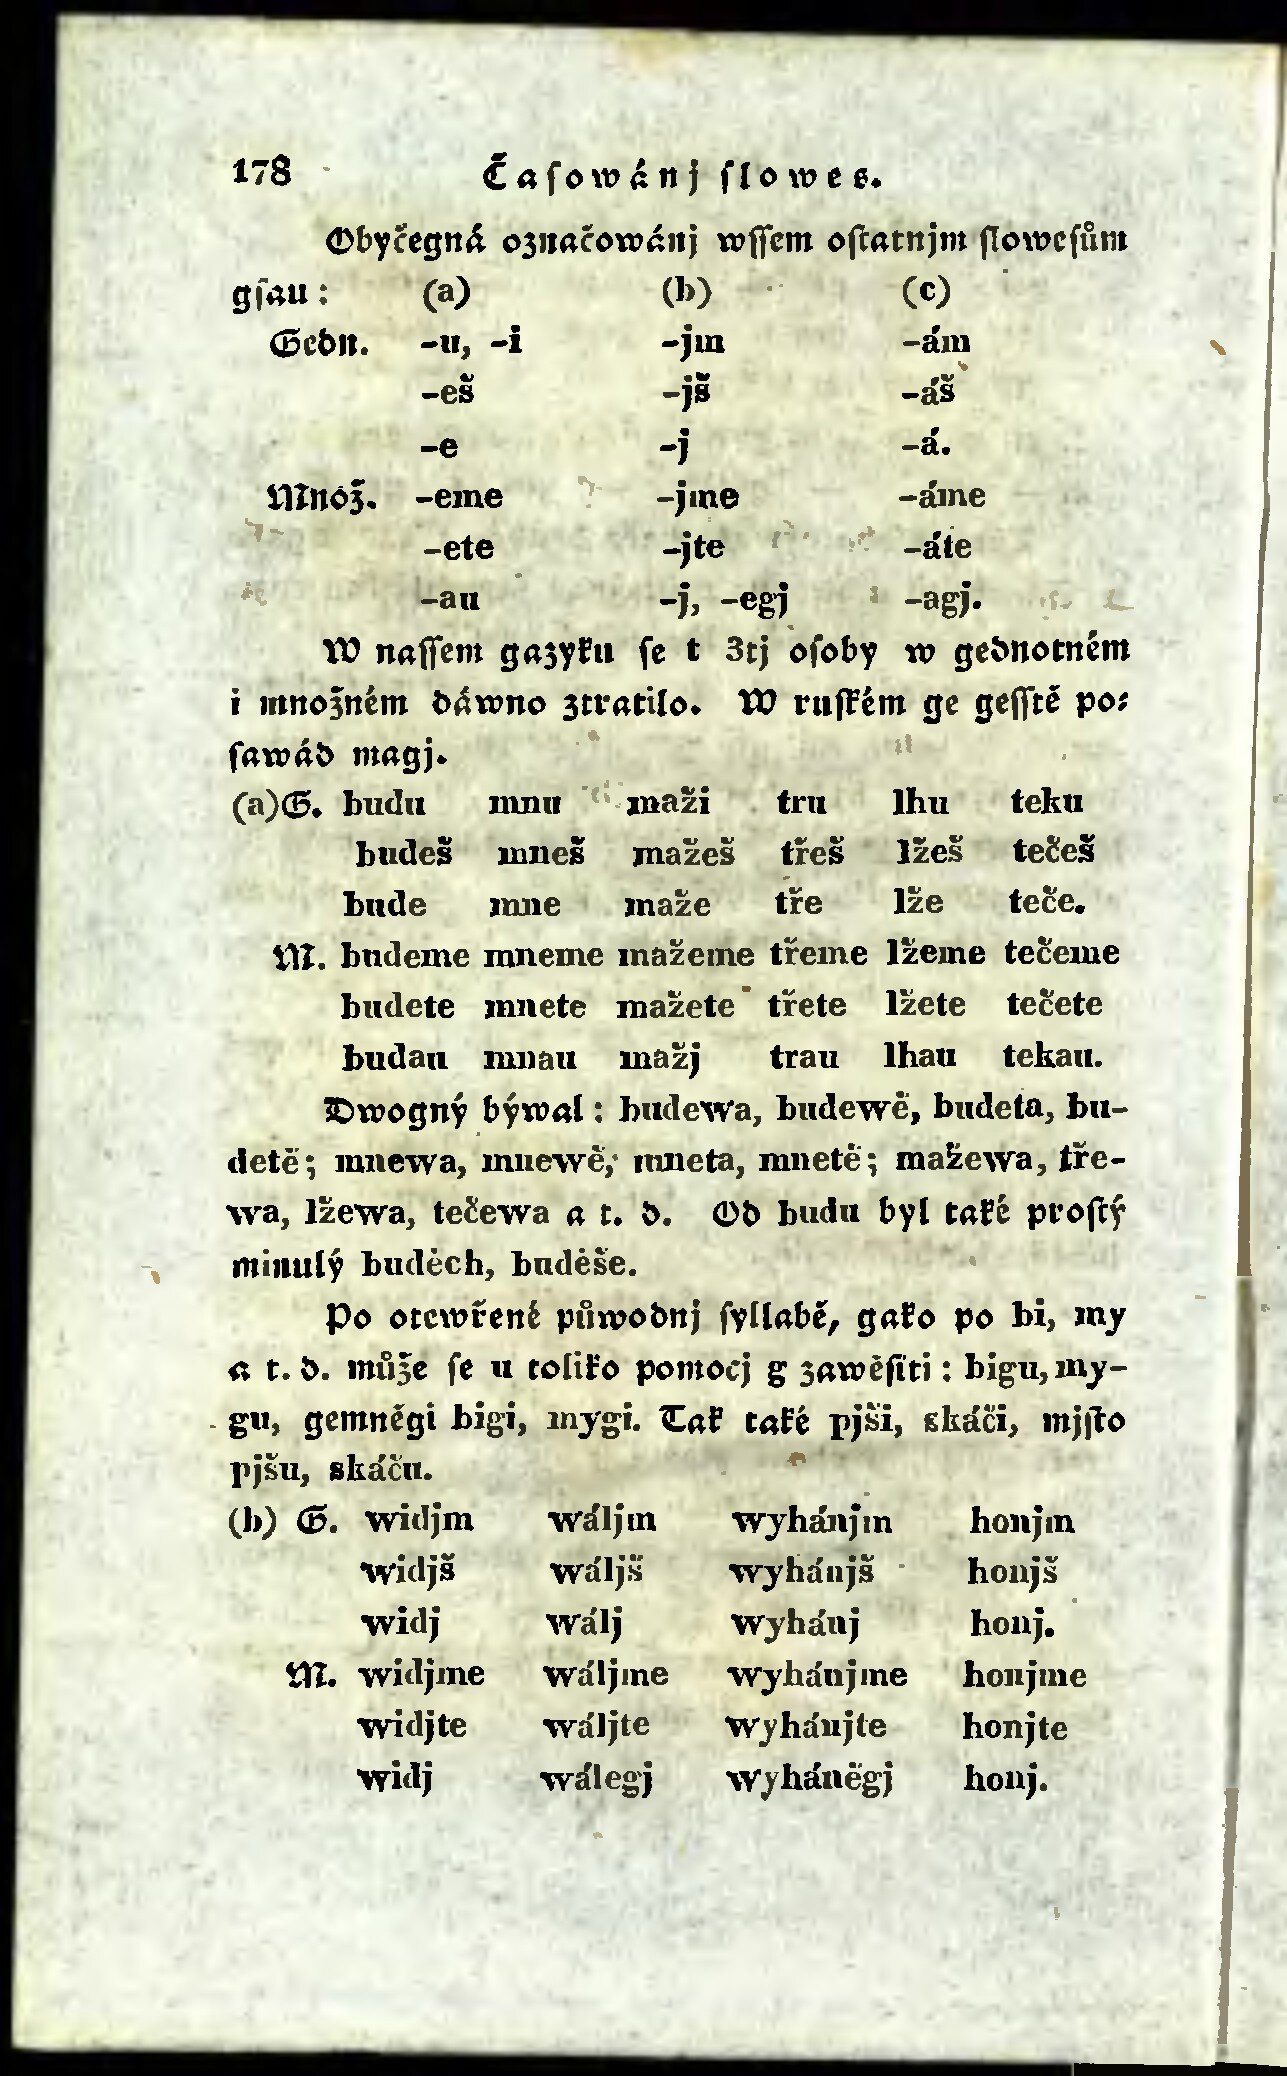 178 Časowánj slowes.
Obyčegná označowánj wssem ostatnjm slowesům
gsau: (a) (b) (c)
Gedn. -u, -i -jm -ám
-eš -jš -áš
-e -j -á.
Množ. -eme -jme -áme
-ete -jte -áte
-au -j, -egj -agj.
W nassem gazyku se t 3tj osoby w gednotném
i množném dáwno ztratilo. W ruském ge gesstě po-
sawád magj.
(a) G. budu mnu maži tru lhu teku
budeš mneš mažeš třeš lžeš tečeš
bude mne maže tře lže teče.
M. budeme mneme mažeme třeme lžeme tečeme
budete mnete mažete třete lžete tečete
budau mnau mažj trau lhau tekau.
Dwogný býwal: budewa, budewě, budeta, bu-
detě; mnewa, mnewě, mneta, mnetě; mažewa, tře-
wa, lžewa, tečewa a t. d. Od budu byl také prostý
minulý buděch, buděše.
Po otewřené půwodnj syllabě, gako po bi, my
a t. d. může se u toliko pomocj g zawěsiti: bigu, my-
gu, gemněgi bigi, mygi. Tak také pjši, skáči, mjsto
pjšu, skáču.
(b) G. widjm wáljm wyhánjm honjm
widjš wáljš wyhánjš honjš
widj wálj wyhánj honj.
M. widjme wáljme wyhánjme honjme
widjte wáljte wyhánjte honjte
widj wálegj wyháněgj honj.